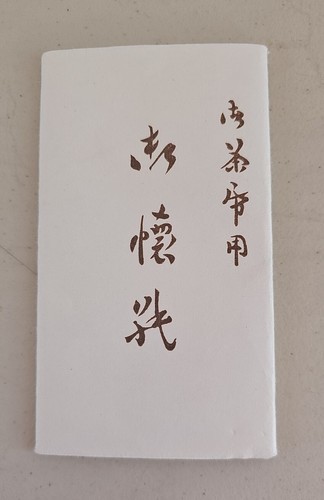 御茶席用
御懐紙